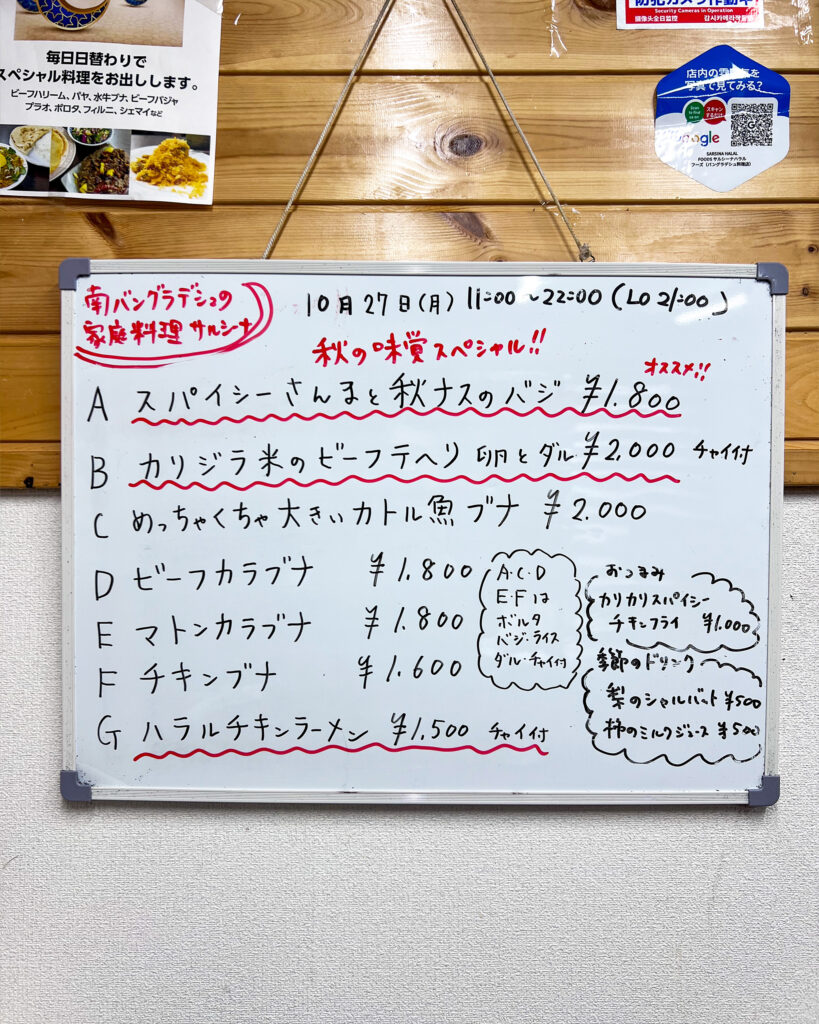 毎日日替わりで
スペシャル料理をお出しします。
ビーフハリーム、パヤ、水牛ブナ、ビーフバジャ
プラオ、ポロタ、フィルニ、シェマイなど
防犯カメラ作動中
Security Cameras in Operation
摄像头全日监控 감시카메라작동중
店内の雰囲気を
写真で見てみる?
スキャン
するだけ
Google
SARSINA HALAL
FOODS サルシーナハラル
フーズ (バングラデシュ料理店)
南バングラデシュの
家庭料理 サルシーナ
10月27日(月) 11:00~22:00 (LO 21:00)
秋の味覚スペシャル!!
オススメ!!
A スパイシーさんまと秋ナスのバジ ¥1.800
B カリジラ米のビーフテヘリ 卵とダル ¥2,000 チャイ付
C めっちゃくちゃ大きいカトル魚ブナ ¥2.000
D ビーフカラブナ ¥1.800
E マトンカラブナ ¥1.800
F チキンブナ ¥1.600
G ハラルチキンラーメン ¥1,500 チャイ付
A・C・D
E・Fは
ボルタ
バジ・ライス
ダル・チャイ付
おつまみ
カリカリスパイシー
チキンフライ ¥1.000
季節のドリンク
梨のシャルバート ¥500
柿のミルクジュース ¥500